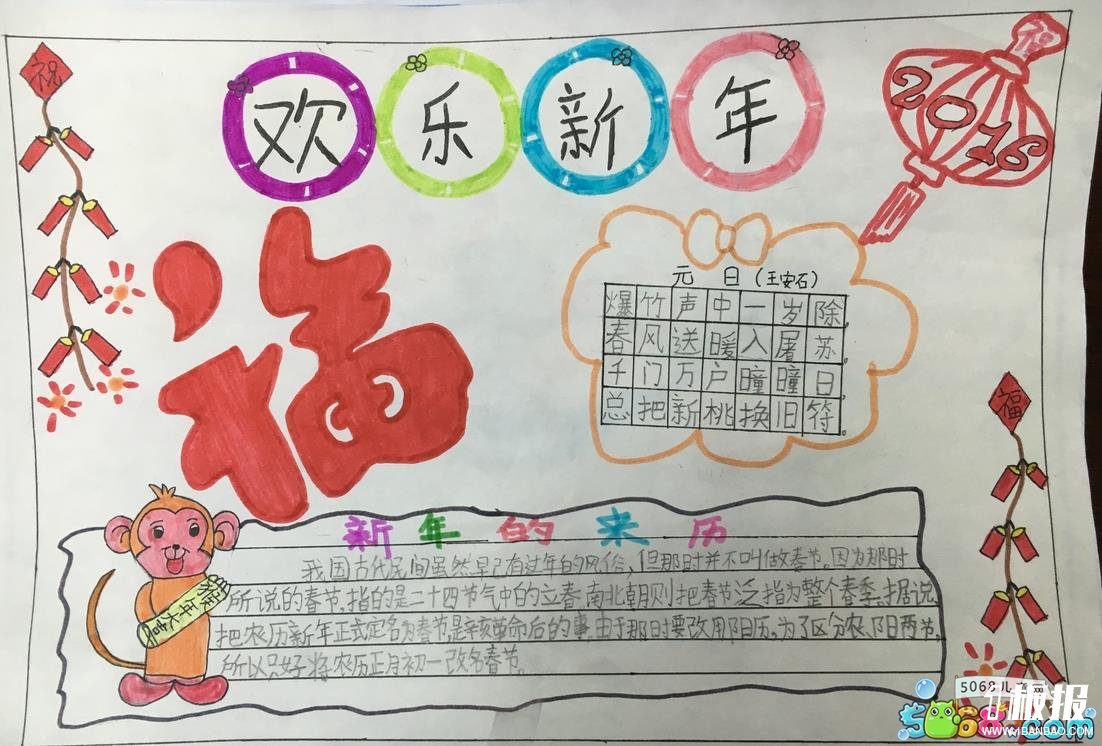 祝
欢乐新年
2016
福
元 日(王安石)
爆竹声中一岁除,
春风送暖入屠苏。
千门万户曈曈日
总把新桃换旧符。
福
新年的来历
我国古代民间虽然早已有过年的风俗,但那时并不叫做春节。因为那时
所说的春节,指的是二十四节气中的立春,南北朝则把春节泛指为整个春季。据说
把农历新年正式定名为春节,是辛亥革命后的事。由于那时要改用阳历,为了区分农、阳两节,
所以只好将农历正月初一改名春节。
猴年大吉
5068儿
板报
5068.com
WWW.1BANBAO.COM